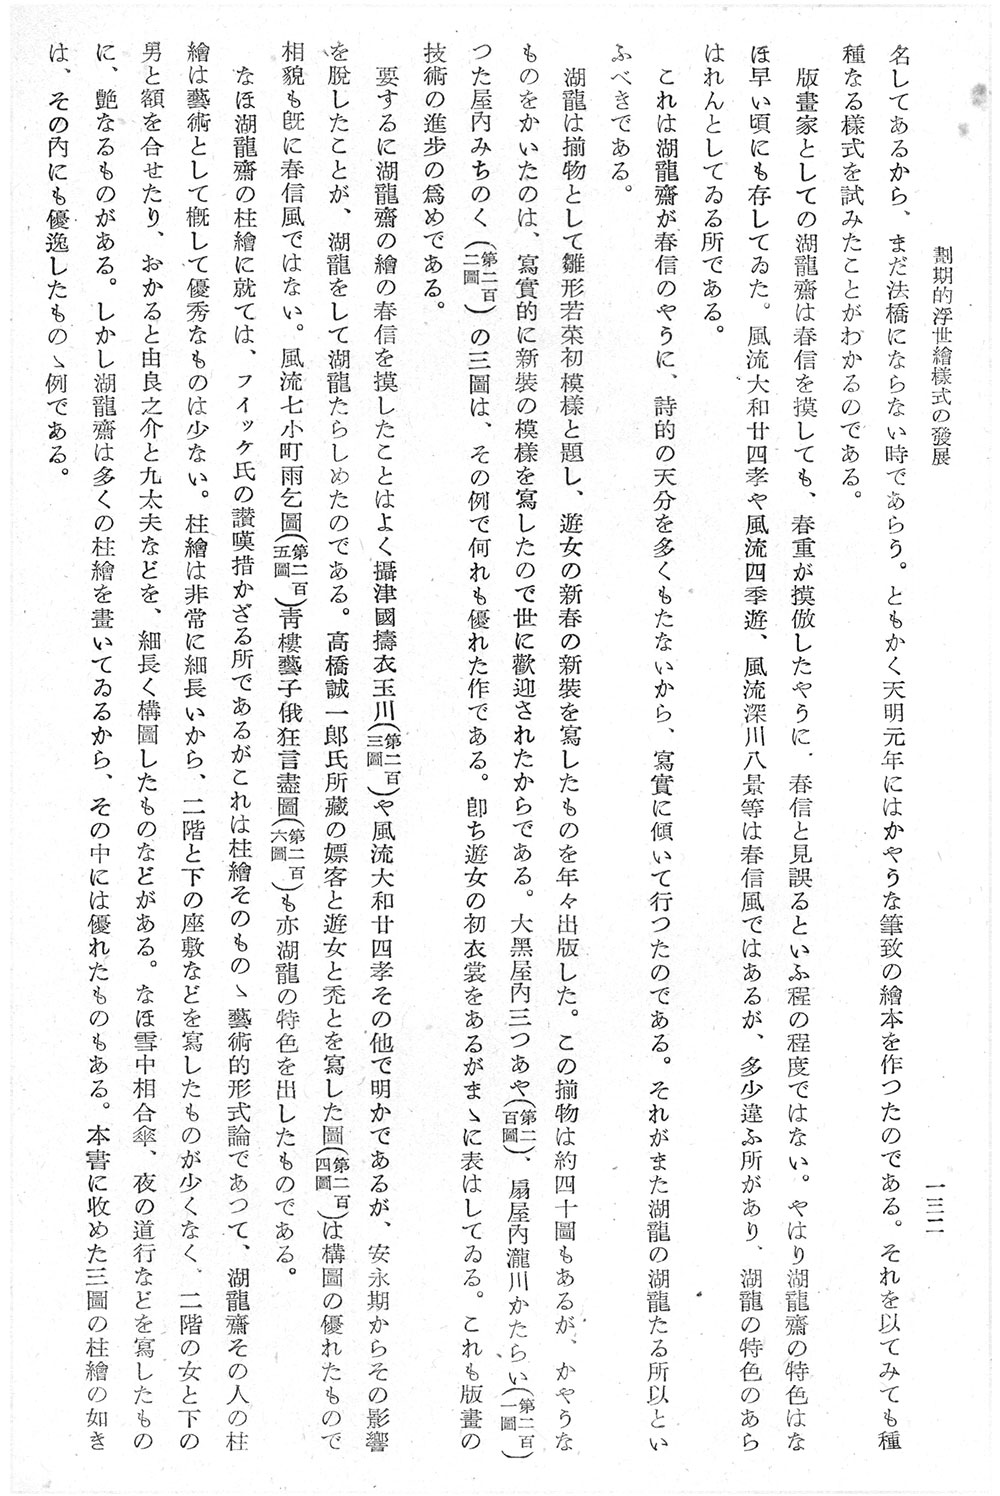 劃期的浮世繪樣式の發展
一三二
名してあるから、まだ法橋にならない時であらう。ともかく天明元年にはかやうな筆致の繪本を作つたのである。それを以てみても種
種なる樣式を試みたことがわかるのである。
版畫家としての湖龍齋は春信を摸しても、春重が摸倣したやうに、春信と見誤るといふ程の程度ではない。やはり湖龍齋の特色はな
ほ早い頃にも存してゐた。風流大和廿四孝や風流四季遊、風流深川八景等は春信風ではあるが、多少違ふ所があり、湖龍の特色のあら
はれんとしてゐる所である。
これは湖龍齋が春信のやうに、詩的の天分を多くもたないから、寫實に傾いて行つたのである。それがまた湖龍の湖龍たる所以とい
ふべきである。
湖龍は揃物として雛形若菜初模樣と題し、遊女の新春の新裝を寫したものを年々出版した。この揃物は約四十圖もあるが、かやうな
ものをかいたのは、寫實的に新裝の模樣を寫したので世に歡迎されたからである。大黑屋内三つあや(第二百圖)、扇屋内瀧川かたらい(第二百一圖)
つた屋内みちのく(第二百二圖)の三圖は、その例で何れも優れた作である。卽ち遊女の初衣裳をあるがまゝに表はしてゐる。これも版畫の
技術の進步の爲めである。
要するに湖龍齋の繪の春信を摸したことはよく攝津國擣衣玉川(第二百三圖)や風流大和廿四孝その他で明かであるが、安永期からその影響
を脫したことが、湖龍をして湖龍たらしめたのである。高橋誠一郎氏所藏の嫖客と遊女と禿とを寫した圖(第二百四圖)は構圖の優れたもので
相貌も旣に春信風ではない。風流七小町雨乞圖(第二百五圖)靑樓藝子俄狂言盡圖(第二百六圖)も亦湖龍の特色を出したものである。
なほ湖龍齋の柱繪に就ては、フイッケ氏の讃嘆措かざる所であるがこれは柱繪そのものゝ藝術的形式論であつて、湖龍齋その人の柱
繪は藝術として槪して優秀なものは少ない。柱繪は非常に細長いから、二階と下の座敷などを寫したものが少くなく、二階の女と下の
男と額を合せたり、おかると由良之介と九太夫などを、細長く構圖したものなどがある。なほ雪中相合傘、夜の道行などを寫したもの
に、艶なるものがある。しかし湖龍齋は多くの柱繪を畫いてゐるから、その中には優れたものもある。本書に收めた三圖の柱繪の如き
は、その内にも優逸したものゝ例である。